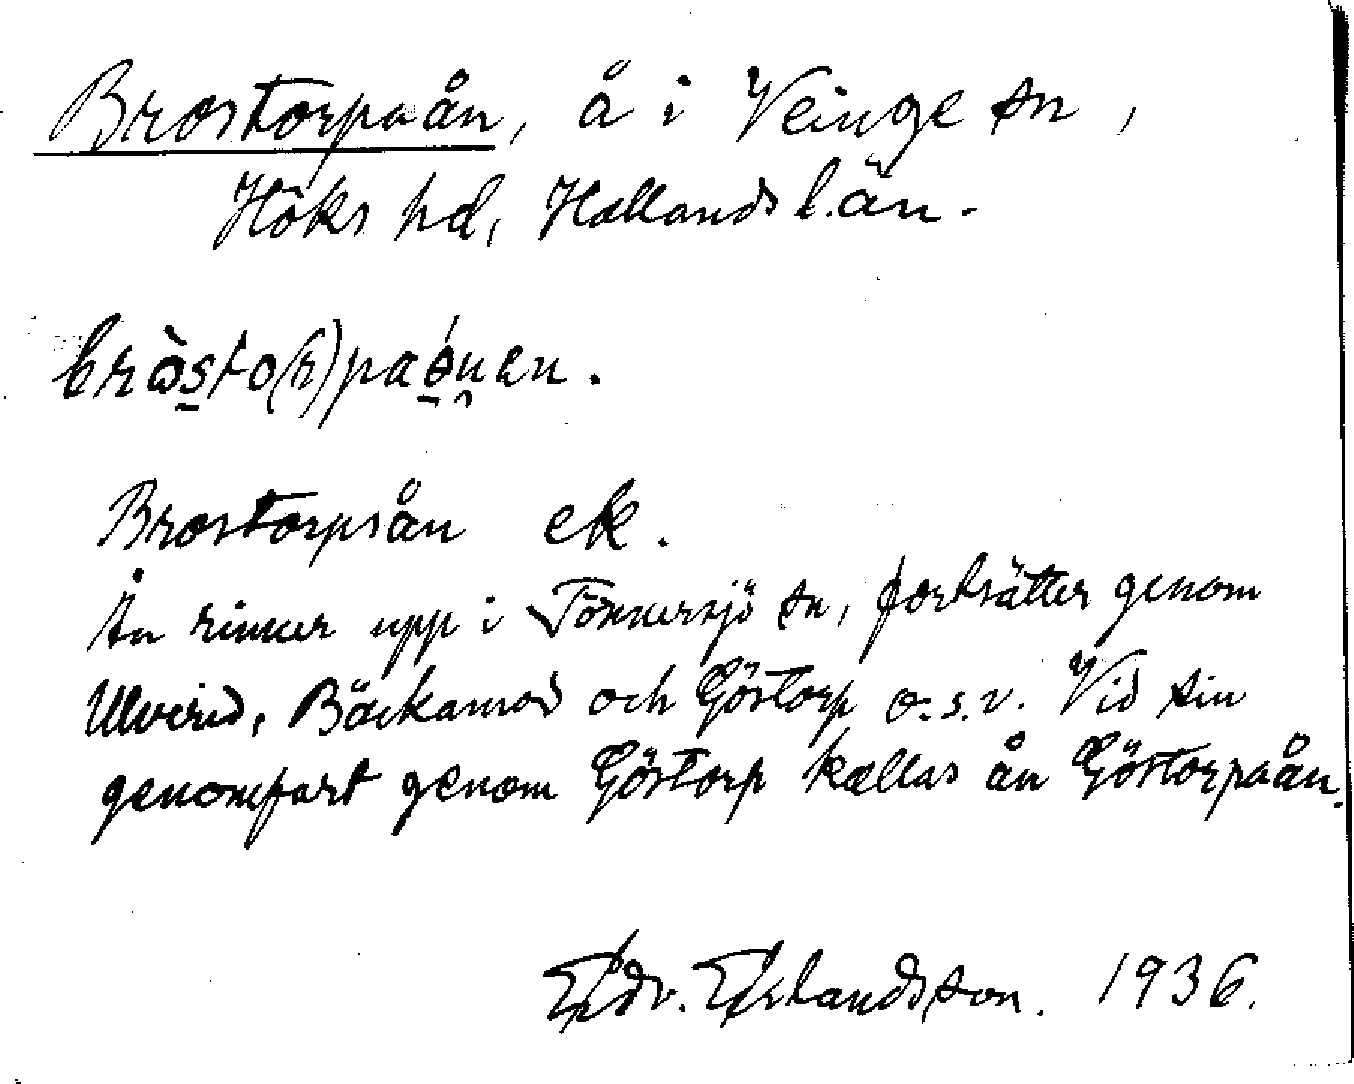 Brostorpaån, å i Veinge sn,
Höks hd, Hallands län.
bròsto(r)paǿnen.
Brostorpsån ek.
Ån rinner upp i Tönnersjö sn, fortsätter genom
Ulvered, Bäckamod och Göstorp o.s.v. Vid sin
genomfart genom Göstorp kallas ån Göstorpaån.
Edv. Erlandsson. 1936.